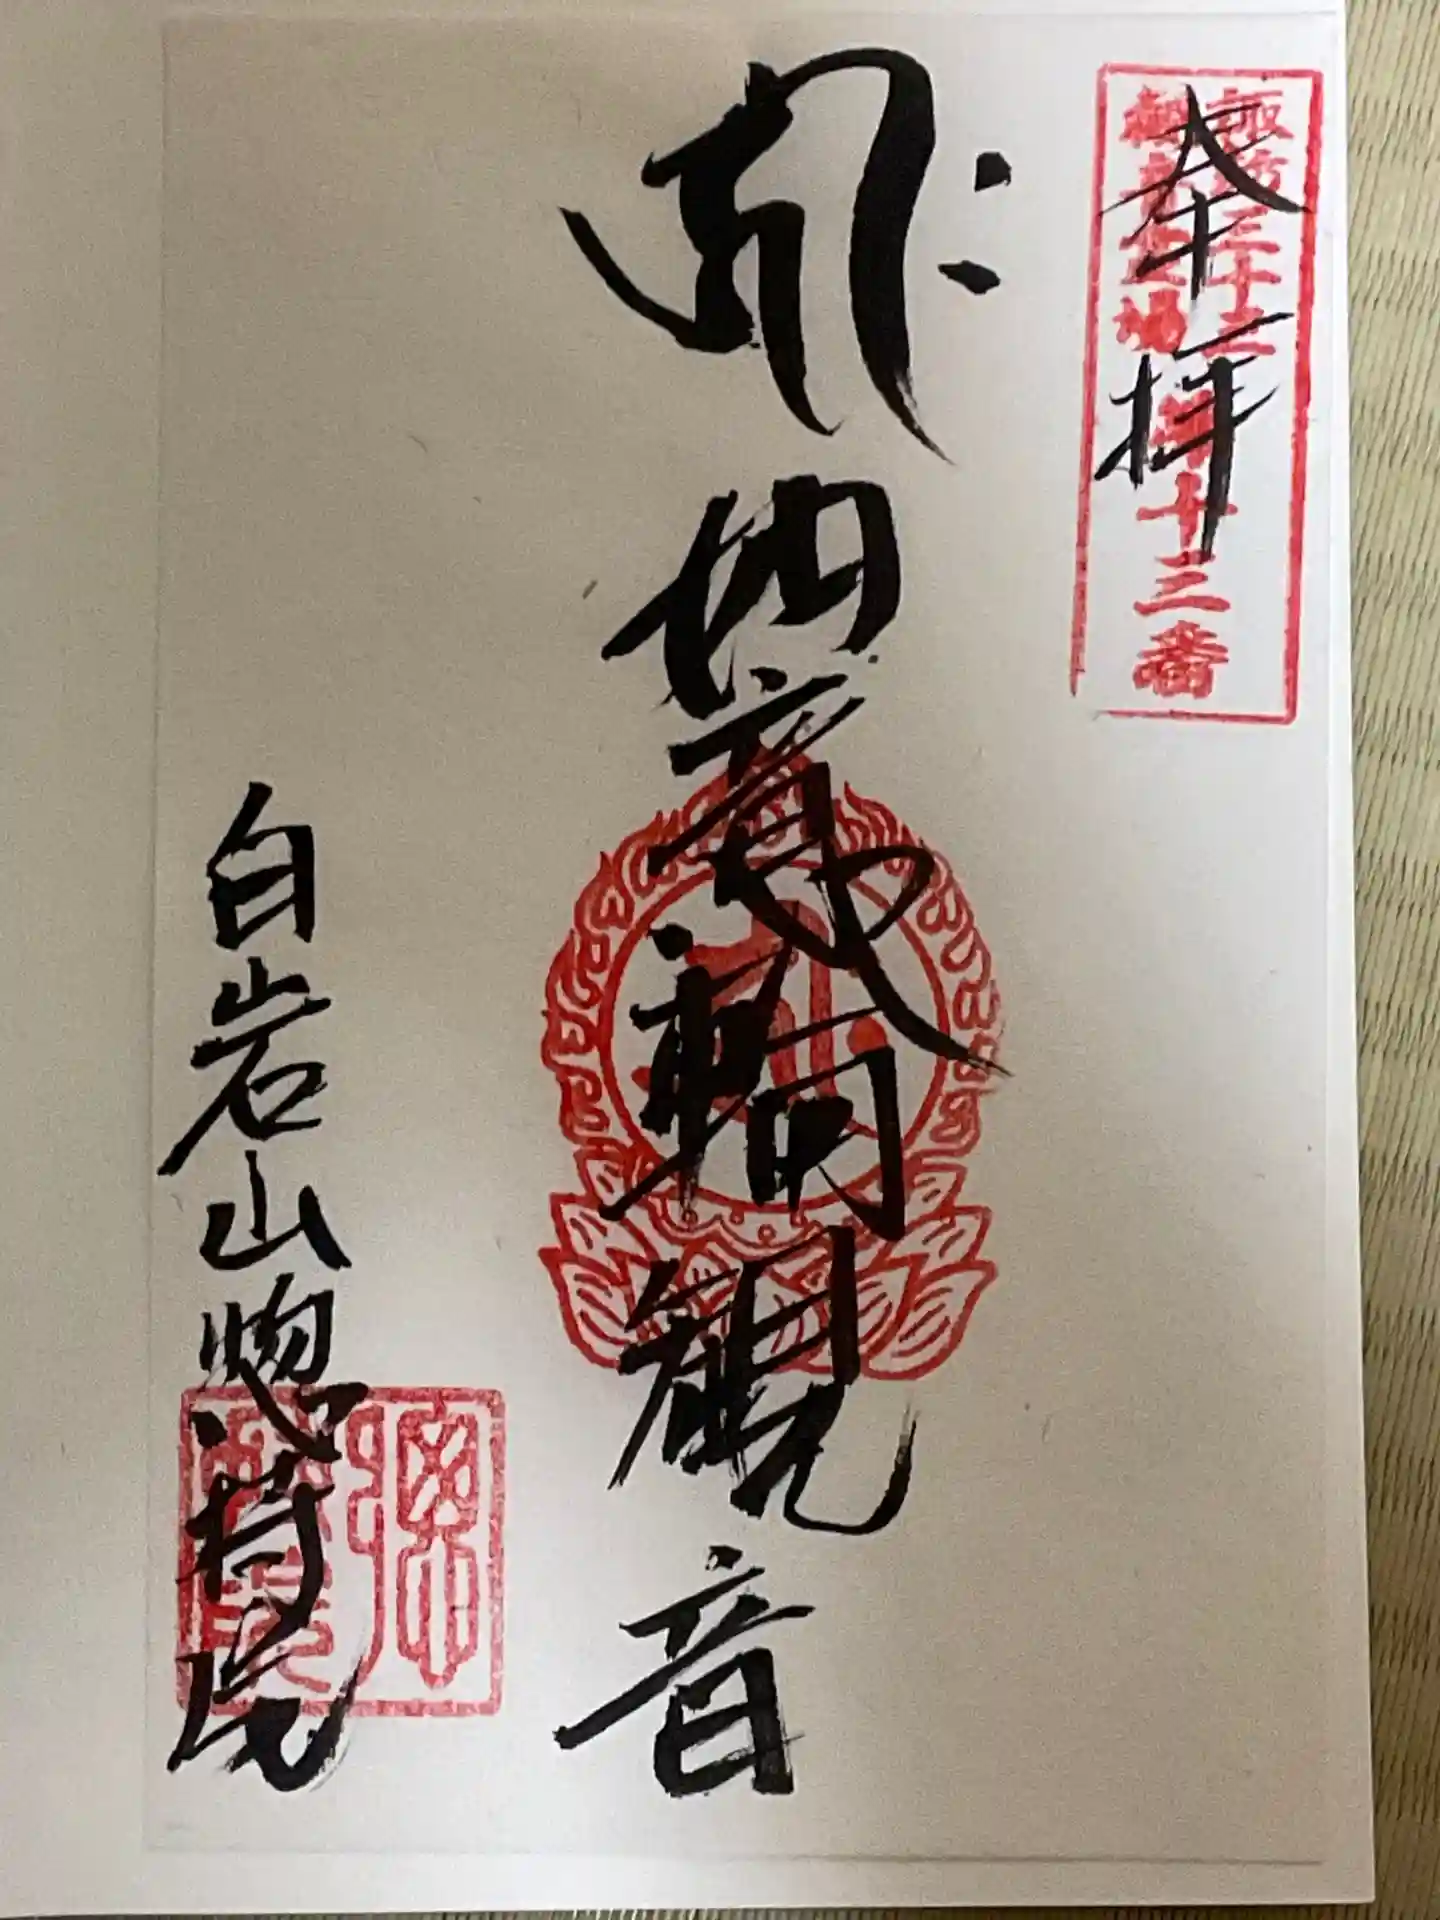 奉拝
諏訪三十三
観音霊場
第十三番
ह्रीः
如意輪観音
白岩山惣持院